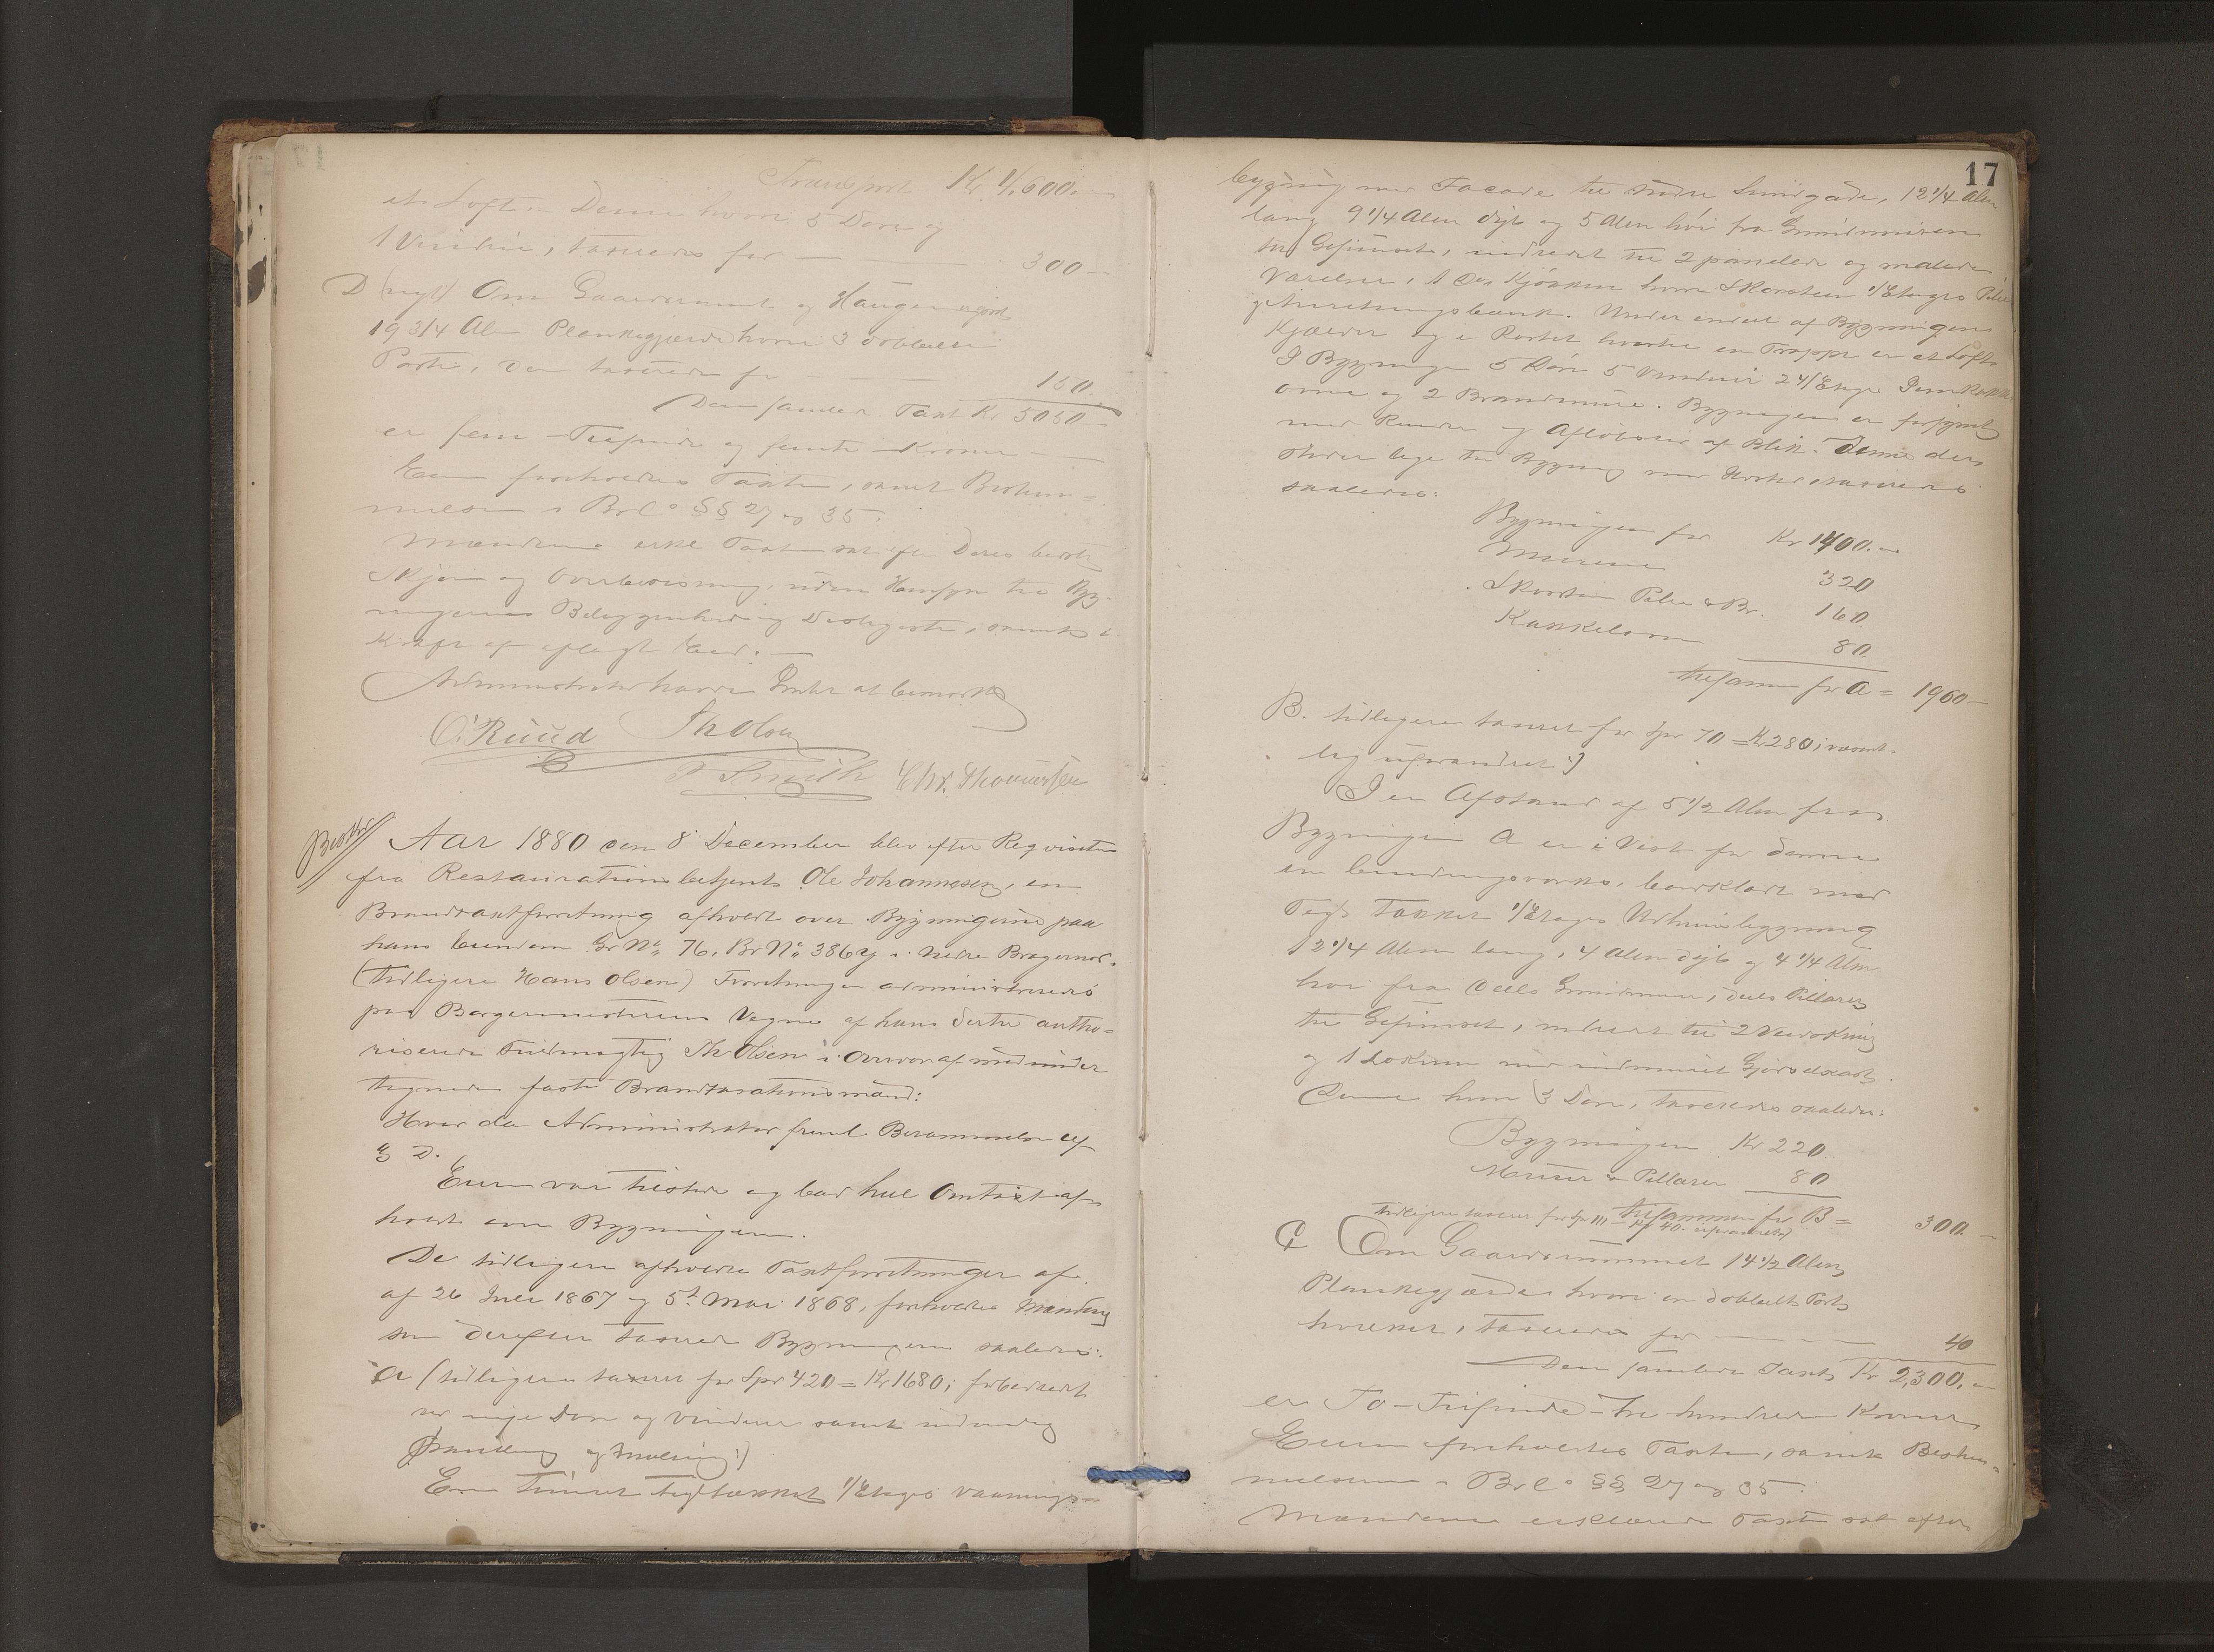 Transport Kr 4,600.
et Loft. Denne hvori 5 Døre og
1 Vindue, taxeres for — 300 —
D (nyt) Om Gaardsrummet og Haugen er
19 3/4 Alen Plankegjærde hvori 3 dobbelte
Porte, den taxeres for — 150.
Den samlede Taxt Kr 5050 —
er fem - Tusinde og femti - Kroner —
Eieren forholdtes Taxten, samt Bestem=
melsen i Brl. §§ 27 og 35.
Mændene erkl. Taxten sat efter Deres bedste
Skjøn og Overbevisning, uden Hensyn til Byg-
ningernes Beliggenhed og Desligeste, samt i
Kraft af aflagt Eed. —
Administrator havde Intet at bemærke
O. Ruud Th Olsen
Smith Chr. Thommesen
Besk. // Aar 1880 den 8 December blev efter Reqvisition
fra Restaurationsbetjent Ole Johannesen, en
Brandtaxtforretning afholdt over Bygningerne paa
hans Eiendom Gr No 76. Br No 386y i Nedre Bragernæs.
(tidligere Hans Olsen) Forretningen administreredes
paa Borgermesterens Vegne af hans dertil autho=
riserede Fuldmægtig Th Olsen i Overvær af med under
tegnede faste Brandtaxationsmænd:
Hvor da Administrator freml. Berammelse af
8 D.
Eieren var tilstede og bad hel Omtaxt af-
holdt over Bygningerne.
De tidligere afholdte Taxtforretninger af
af 26 Juli 1867 og 5te Mai 1868, forholdtes Mændene
som derefter taxerede Bygningerne saaledes:
A (tidligere taxeret for Spd 420 = Kr 1680; forbedret
ved nye Døre og Vinduer samt indvendig
Paneling og Maling:)
En tømret tegltækket 1/Etages Vaanings-
17
bygning med Facade til nedre Smidgade, 12 1/4 Alen
lang 9 1/4 Alen dyb og 5 Alen høi fra Grundmuren
til Gesimset, indredet til 2 panelede og malede
Værelser, 1 Do Kjøkken hvori Skorsteen 1/Etages Pibe
g Anretningsbænk. Under endeel af Bygningen
Kjælder og i Røstet hvortil en Trappe er et Loft.
I Bygningen 5 Døre 5 Vinduer 2 4/Etages Jernkakkel
ovne og 2 Brandmure. Bygningen er forsynet
med Render og Afløbsrør af Blik. Denne des
uden lagt til Bygning med taxeredes
saaledes:
Bygningen for Kr 1400. —
Murene 320
Skorsten Pibe & Br. 160
Kakkelovne 80.
tilsammen for A = 1960 —
B. tidligere taxeret for Spd 70 = Kr 280; væsent-
lig uforandret:)
I en Afstand af 5 1/2 Alen fra
Bygningen A er i Vest for denne
en bindingsværks, bordklædt med
Tegl tækket 1/Etages Udhuusbygning
12 1/4 Alen lang, 4 Alen dyb og 4 1/4 Alen
høi fra deels Grundmuur, deels Pillarer
til Gesimset, indredet til 2 Vedskjul
og 1 Lokum med indmuret Gjødselkast.
Denne hvori 3 Døre, taxeredes saaledes:
Bygningen Kr 220.
Murer & Pillarer 80
tilsammen for B = 300. —
tidligere taxeret for Spd 10 = Kr 40. uforandret)
C Om Gaardsrummet 14 1/2 Alen
Plankegjærde hvori en dobbelt Port
taxeredes for — 40
Den samlede Taxt Kr 2,300. —
er To - Tusinde - tre hundrede Kroner
Eieren forholdtes Taxten, samt Bestem-
melserne i Brl. §§ 27 og 35.
Mændene erklærede Taxten sat efter